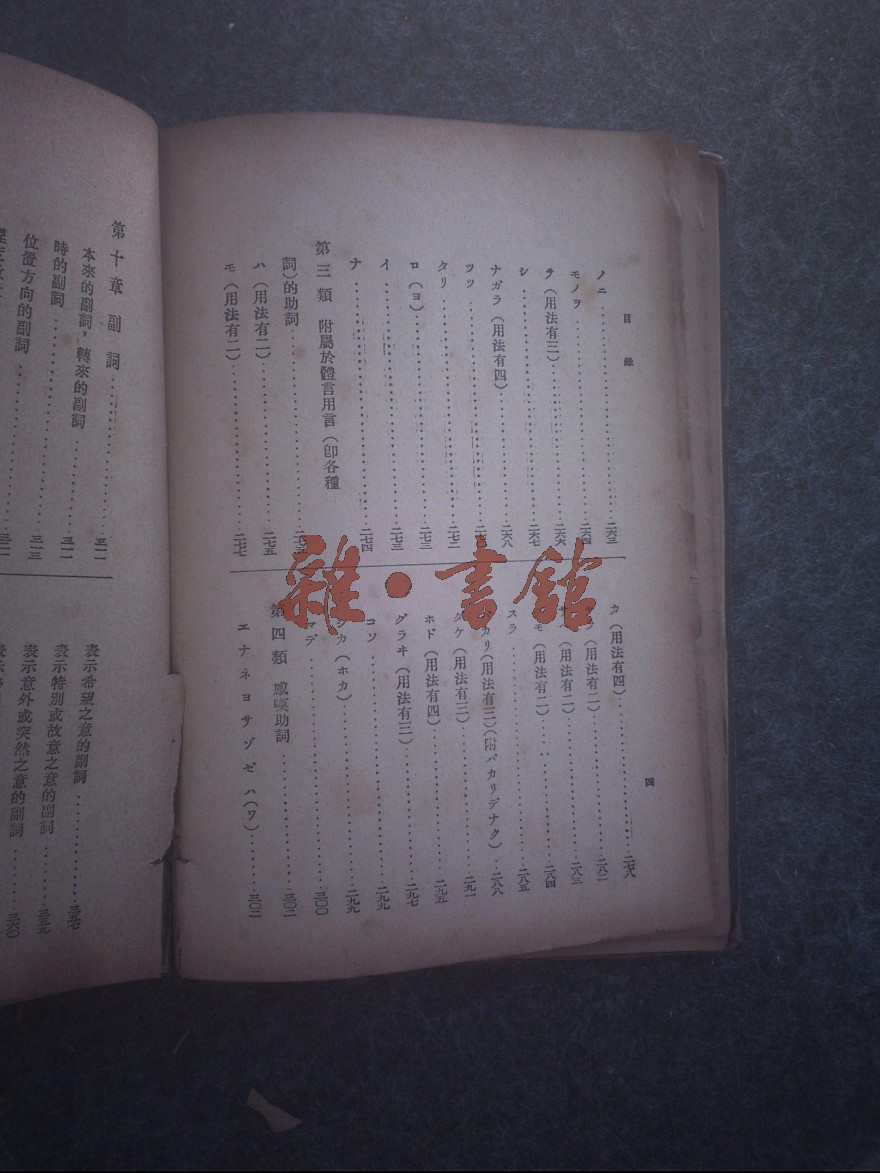 目錄
ノニ……二六三
モノヲ……二六四
テ（用法有三）……二六六
シ……二六七
ナガラ（用法有四）……二六八
ツツ……二七〇
タリ……二七二
ロ（ヨ）……二七三
イ……二七三
ナ……二七四
第三類　附屬於體言用言（卽各種
詞）的助詞……
ハ（用法有二）……二七五
モ（用法有二）……二七七
カ（用法有四）……二七八
（用法有二）……二八二
（用法有二）……二八三
モ（用法有二）……二八四
スラ……二八五
カリ（用法有三）（附バカリデナク）……二八八
ダケ（用法有三）……二九一
ホド（用法有四）……二九五
グラヰ（用法有三）……二九七
コソ……二九九
シカ（ホカ）……二九九
マデ……三〇〇
第四類　感嘆助詞……三〇二
エナネヨサゾゼハ（ワ）……三〇二
四
第十章　副詞……三一一
本來的副詞，轉來的副詞……三一一
時的副詞……三一二
位置方向的副詞……三一三
表示希望之意的副詞……三五七
表示特別或故意之意的副詞……三五九
表示意外或突然之意的副詞……三六〇
雜·書館